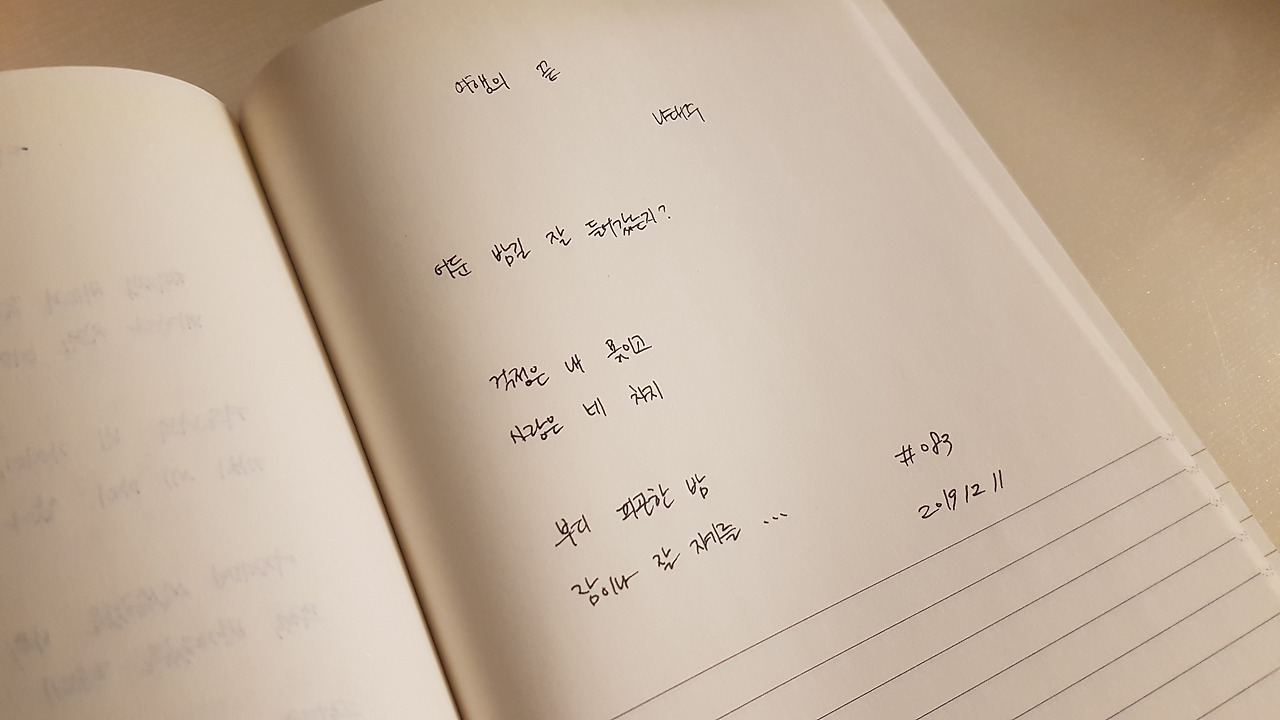 여행의 끝
나태주
어둔 밤길 잘 들어갔는지?
걱정은 내 몫이고
사랑은 네 차지
부디 피곤한 밤
잠이나 잘 자기를 ...
#083
2019 12 11